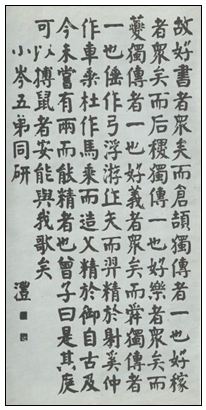 故好書者衆矣而倉頡獨傳者一也好稼
者衆矣而后稷獨傳一也好樂者衆矣而
夔獨傳者一也好義者衆矣而舜獨傳者
一也倕作弓浮游作矢而羿精於射奚仲
作車乘杜作馬乘而造父精於御自古及
今未嘗有兩而能精者也曾子曰是其庭
可以搏鼠者安能與我歌矣
小岑五弟同研
澧